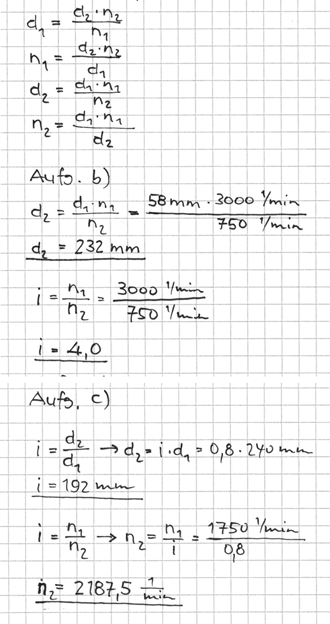 d₁ = d₂ · n₂ / n₁
n₁ = d₂ · n₂ / d₁
d₂ = d₁ · n₁ / n₂
n₂ = d₁ · n₁ / d₂
Aufg. b)
d₂ = d₁ · n₁ / n₂ = 58 mm · 3000 1/min / 750 1/min
d₂ = 232 mm
i = n₁ / n₂ = 3000 1/min / 750 1/min
i = 4,0
Aufg. c)
i = d₂ / d₁ → d₂ = i · d₁ = 0,8 · 240 mm
i = 192 mm
i = n₁ / n₂ → n₂ = n₁ / i = 1750 1/min / 0,8
n₂ = 2187,5 1/min